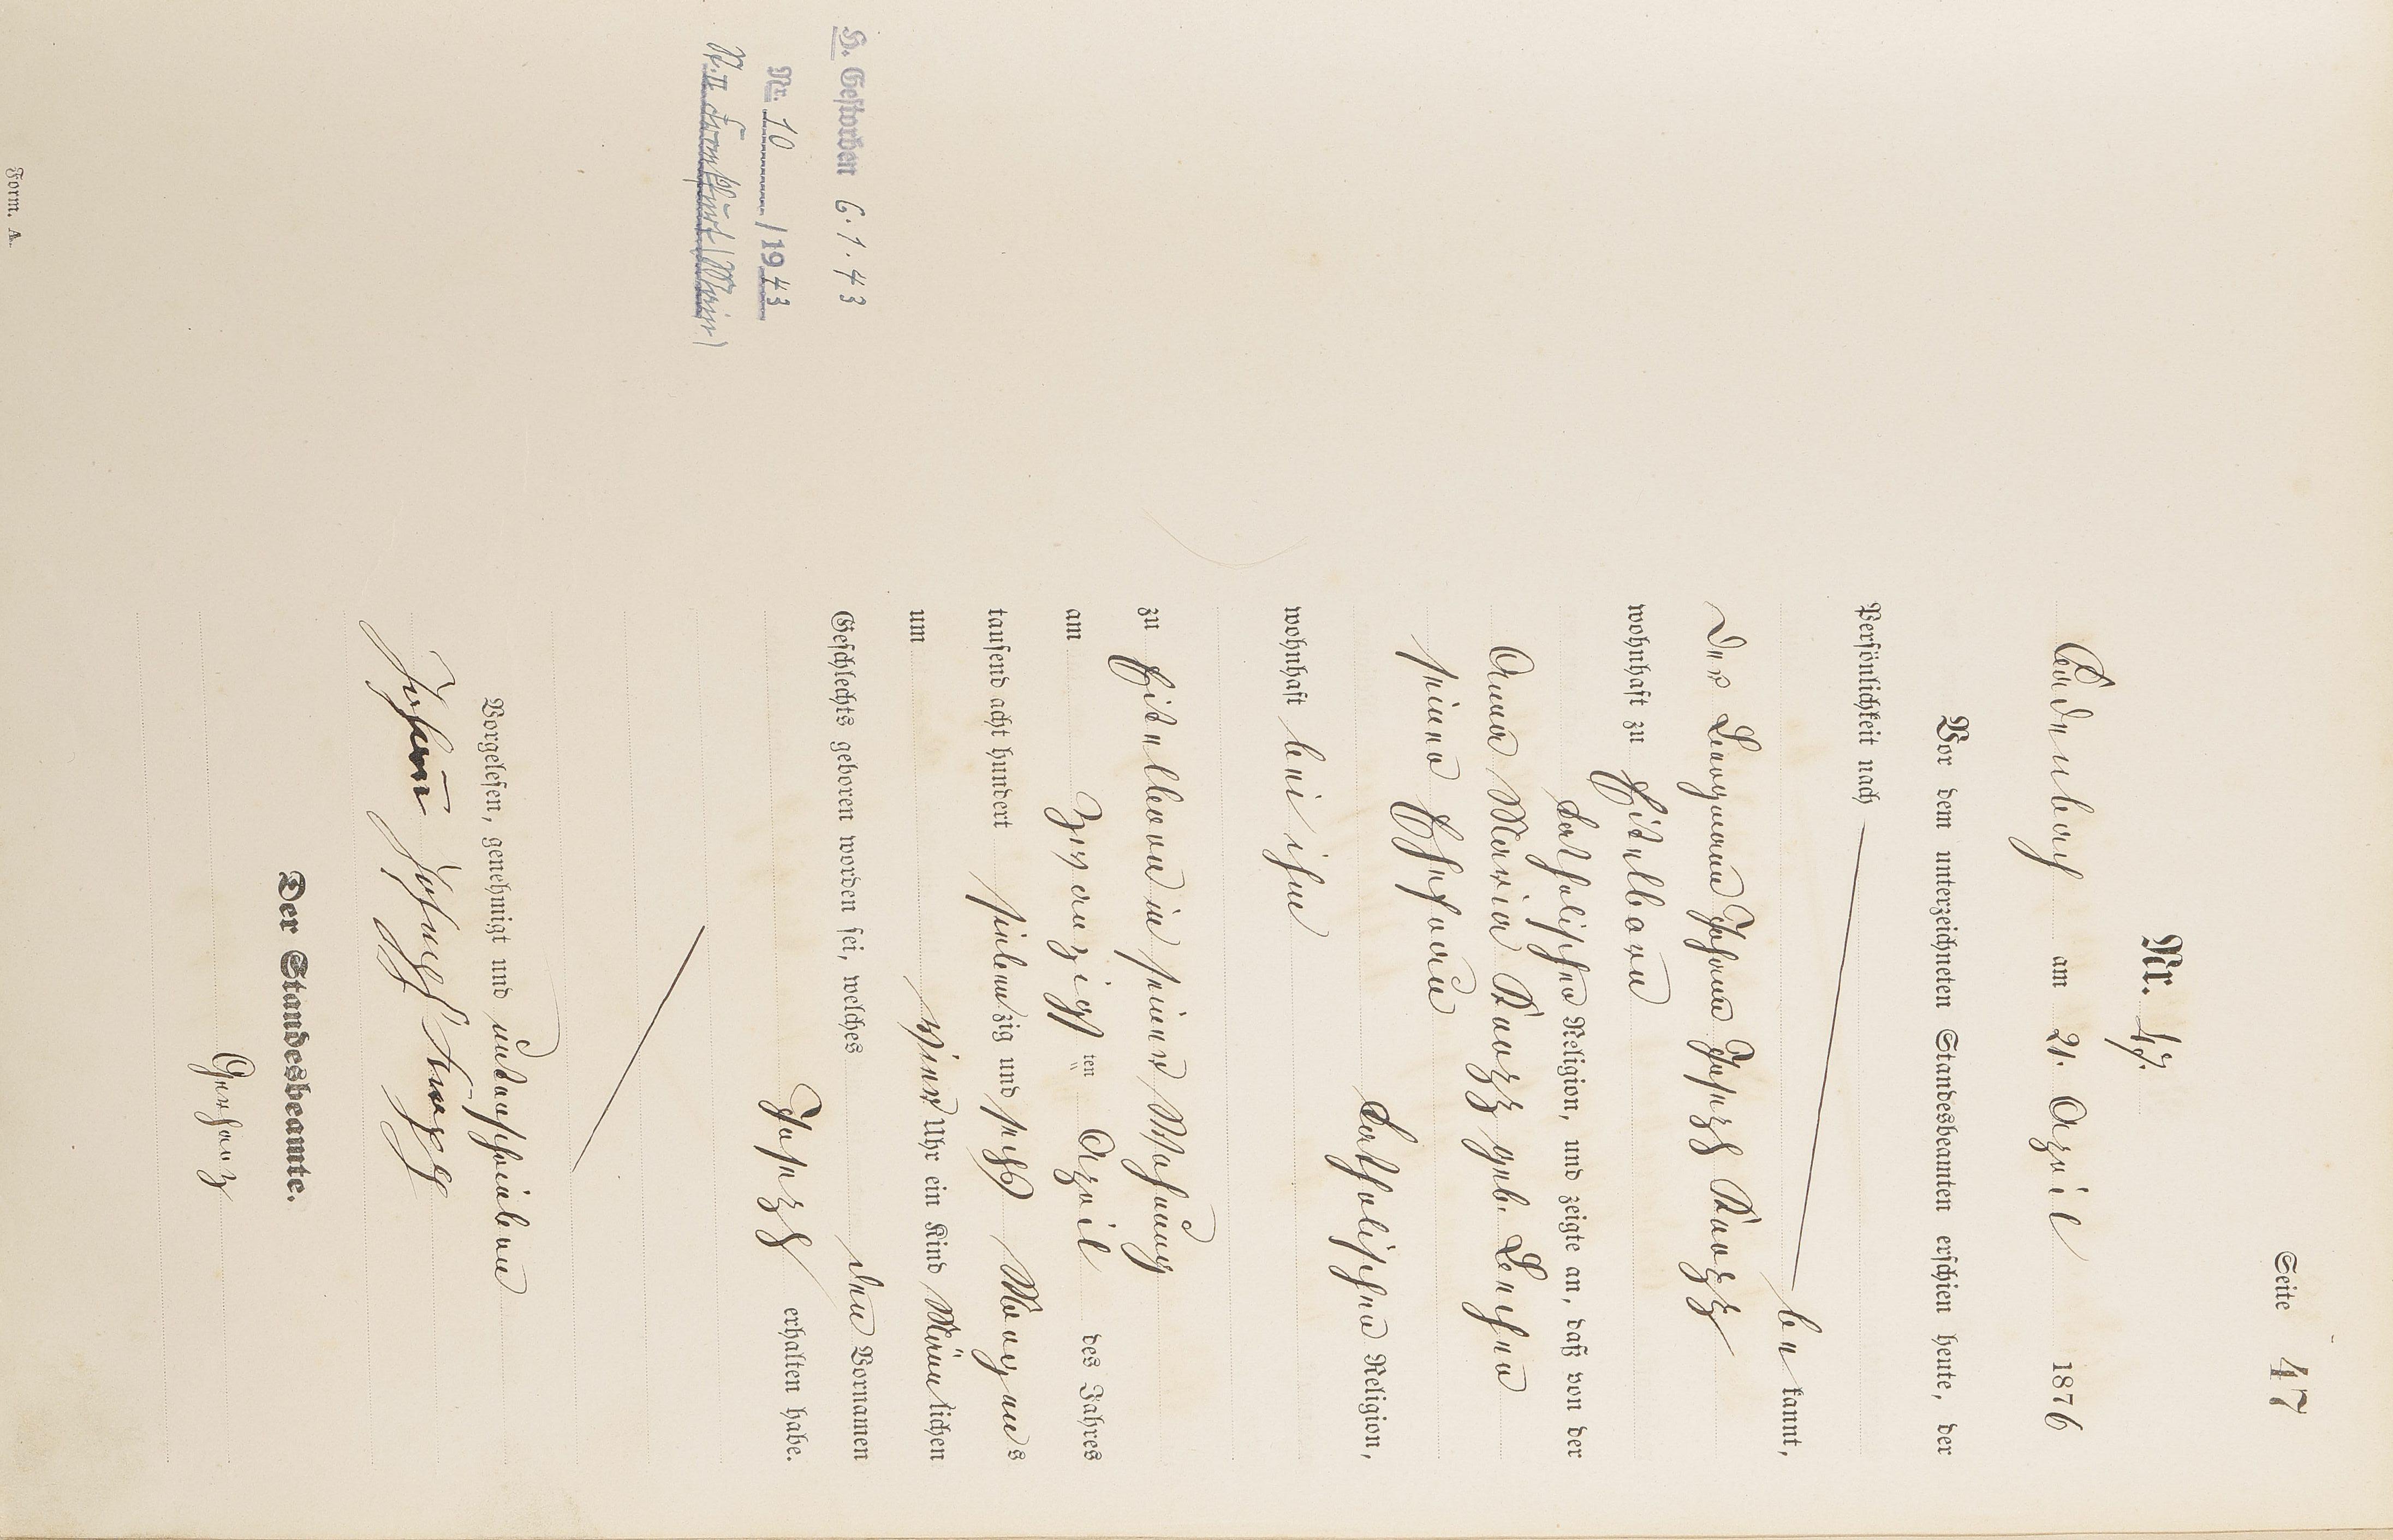 Seite 47
Nr. 47.
Cadenbach am 21. April 1876
Vor dem unterzeichneten Standesbeamten erschien heute, der
Persönlichkeit nach
bekannt,
der Bergmann Johann Joseph Knopp
wohnhaft zu Eitelborn
katholischer Religion, und zeigte an, daß von der
Anna Maria Knopp geb.
seiner Ehefrau
katholischer Religion,
wohnhaft bei ihm
zu Eitelborn in seiner Wohnung
am Zwanzigsten April des Jahres
tausend acht hundert siebenzig und sechs Morgens
um vier Uhr ein Kind Männlichen
Geschlechts geboren worden sei, welches den Vornamen
Joseph erhalten habe.
Vorgelesen, genehmigt und unterschrieben
Johann Joseph Knopp
Der Standesbeamte.
Gerharz
H. Gestorben 6.1.43
Nr. 10/1943
II Frankfurt (Main)
Form. A.